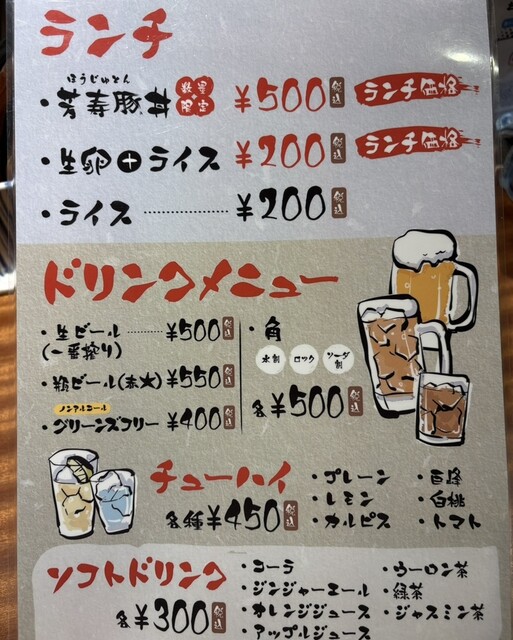 ランチ
ほうじゅとん
・芳寿豚丼 数量限定 ¥500 税込 ランチ価格
・生卵+ライス ¥200 税込 ランチ価格
・ライス ………… ¥200 税込
ドリンクメニュー
・生ビール ……… ¥500 税込
(一番搾り)
・瓶ビール(赤★) ¥550 税込
ノンアルコール
・グリーンズフリー ¥400 税込
・角
水割 ロック ソーダ割
各¥500 税込
チューハイ
各種¥450 税込
・プレーン
・レモン
・カルピス
・巨峰
・白桃
・トマト
ソフトドリンク
各¥300 税込
・コーラ
・ジンジャーエール
・オレンジジュース
・アップルジュース
・ウーロン茶
・緑茶
・ジャスミン茶